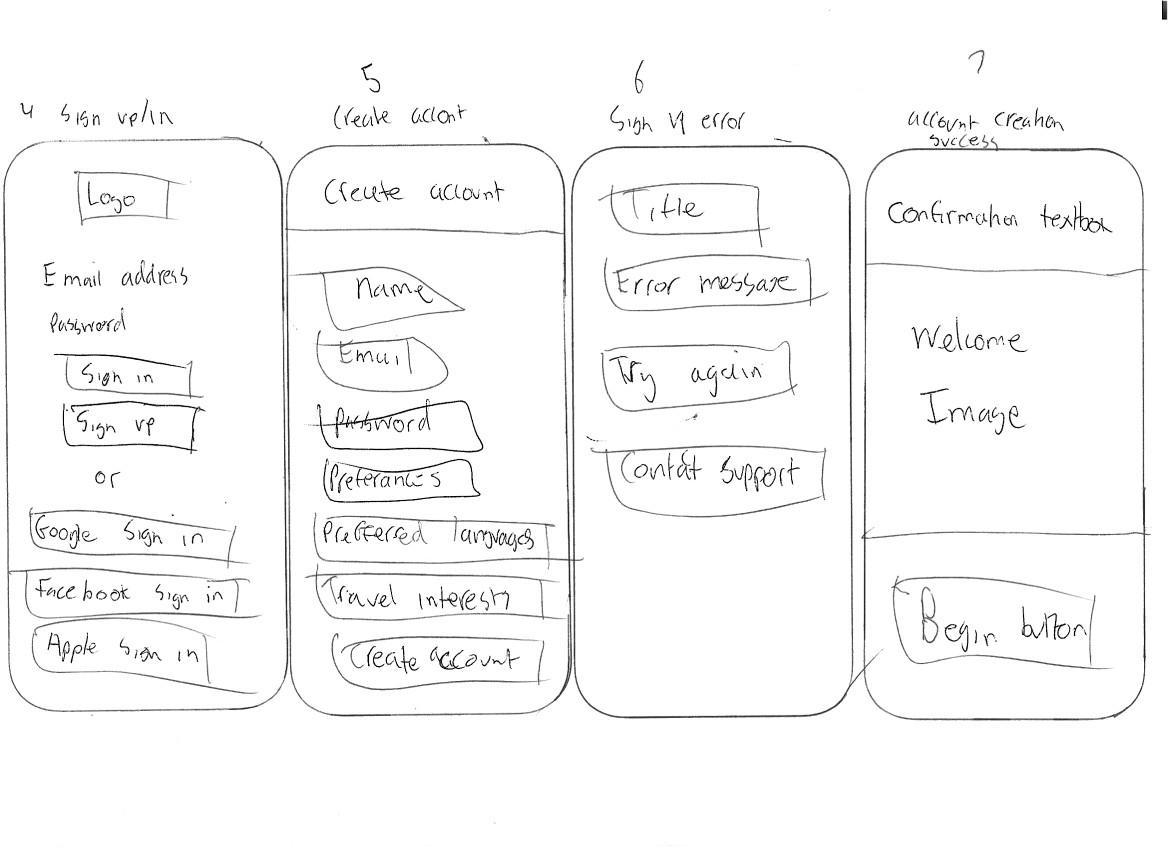 4 Sign up/in
Logo
Email address
Password
Sign in
Sign up
or
Google Sign in
Facebook Sign in
Apple Sign in
5
Create account
Create account
Name
Email
Password
Preferances
Preffered languages
Travel interests
Create account
6
Sign up error
Title
Error message
Try again
Contact support
7
account creation
success
Confirmation textbox
Welcome
Image
Begin button